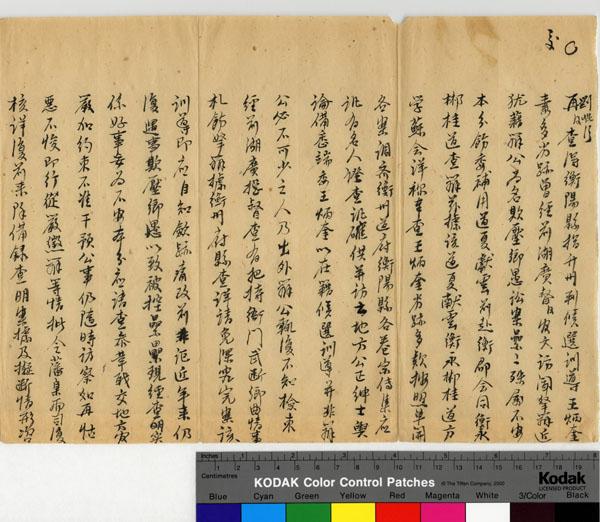 再查得衡陽縣指升州判候選訓導王炳奎
素多劣跡曾經前湖廣督
猶藉辦公為名欺壓鄉愚訟案纍纍殊屬不安
本分飭委補用道夏獻雲前赴衡郡會同衡永
郴桂道查辦茲據該道夏獻雲衡永郴桂道方
學蘇會詳稱查王炳奎劣跡多款按明單開
各案調齊衡州道府衡陽縣各卷宗傳集
有名人證查訊確供并訪之地方公正紳士輿
論備悉端委王炳奎以在籍候選訓導并非辦
公必不可少之人乃出外辦公輒復不知檢束
經前湖廣總督查有把持衙門武斷鄉曲情事
札飭拏辦據衡州府縣查詳請免深究完案該
訓導即應自知斂跡痛改前非詎近年來仍
復遇事欺壓鄉愚以致被控纍纍現經查明實
係好事妄為不安本分應請查參革職交地方官
嚴加約束不准干預公事仍隨時訪察如再怙
惡不悛即行從嚴懲辦等情批令藩臬兩司復
核詳復前來除備錄查明案據及擬斷情形咨
Inches 1 2 3 4 5 6 7
Centimetres 1 2 3 4 5 6 7 8 9 10 11 12 13 14 15 16 17 18 19
KODAK Color Control Patches © The Tiffen Company, 2000 Kodak
LICENSED PRODUCT
Blue Cyan Green Yellow Red Magenta White 3/Color Black